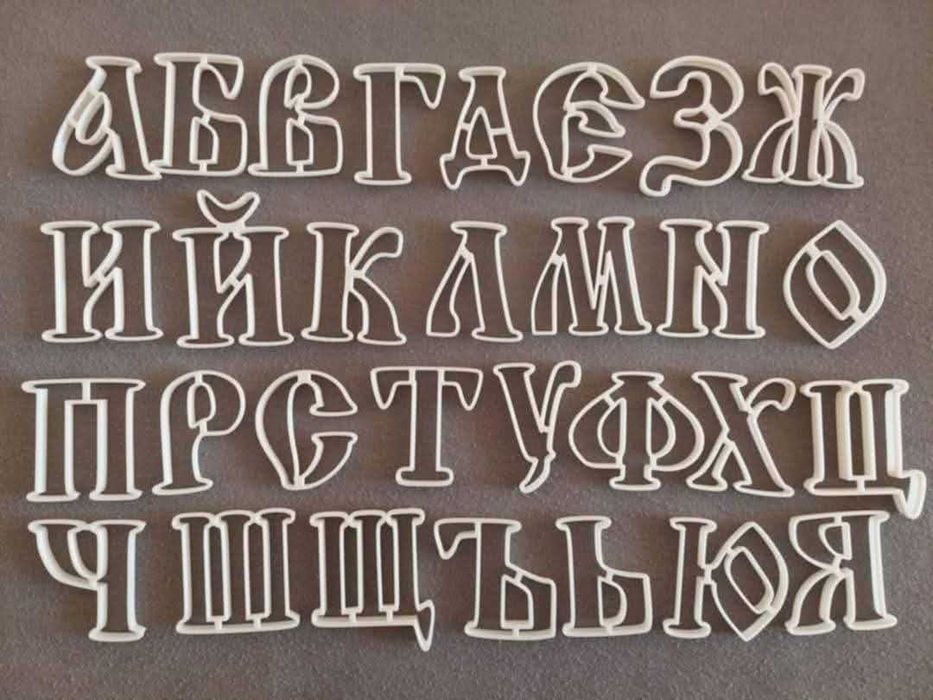 АБВГДЕЗЖ
ИЙКЛМНО
ПРСТУФХЦ
ЧШЩЪЬЮЯ